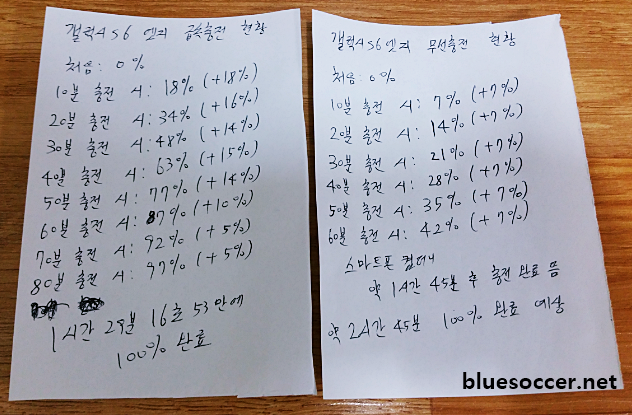 갤럭시 S6 엣지 급속충전 현황
처음: 0%
10분 충전 시: 18% (+18%)
20분 충전 시: 34% (+16%)
30분 충전 시: 48% (+14%)
40분 충전 시: 63% (+15%)
50분 충전 시: 77% (+14%)
60분 충전 시: 87% (+10%)
70분 충전 시: 92% (+5%)
80분 충전 시: 97% (+5%)
1시간 29분 16초 53만에
100% 완료
갤럭시 S6 엣지 무선충전 현황
처음: 0%
10분 충전 시: 7% (+7%)
20분 충전 시: 14% (+7%)
30분 충전 시: 21% (+7%)
40분 충전 시: 28% (+7%)
50분 충전 시: 35% (+7%)
60분 충전 시: 42% (+7%)
스마트폰 켰더니
약 1시간 45분 후 충전 완료 뜸
약 2시간 45분 100% 완료 예상
bluesoccer.net